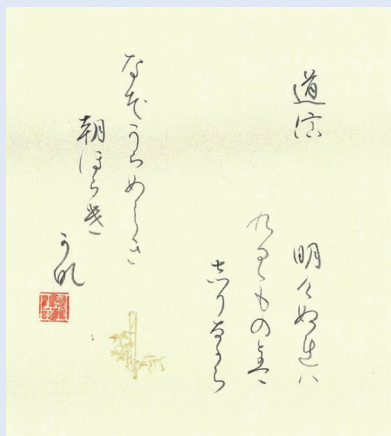 道信
明けぬれは
くるゝものとは
しりなから
なほうらめしき
朝ほらけ
かな